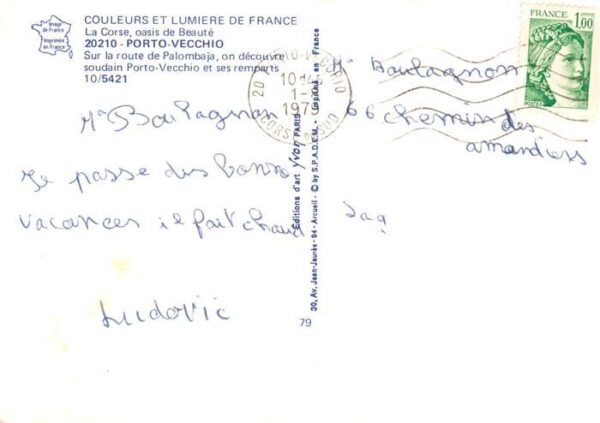 Image
de France
Imprimée
en France
COULEURS ET LUMIERE DE FRANCE
La Corse, oasis de Beauté
20210 - PORTO-VECCHIO
Sur la route de Palombaja, on découvre
soudain Porto-Vecchio et ses remparts
10/5421
Boulagnon
Je passe des bonnes
vacances il fait chaud
Ludovic
Editions d'art Yvon PARIS
30, Av. Jean-Jaurès-94-Arcueil - © by S.P.A.D.E.M. - Imprimé en France
79
20
1979
CORSE
SUD
FRANCE
1,00
POSTES
Boulagnon
66 chemin des
amandiers